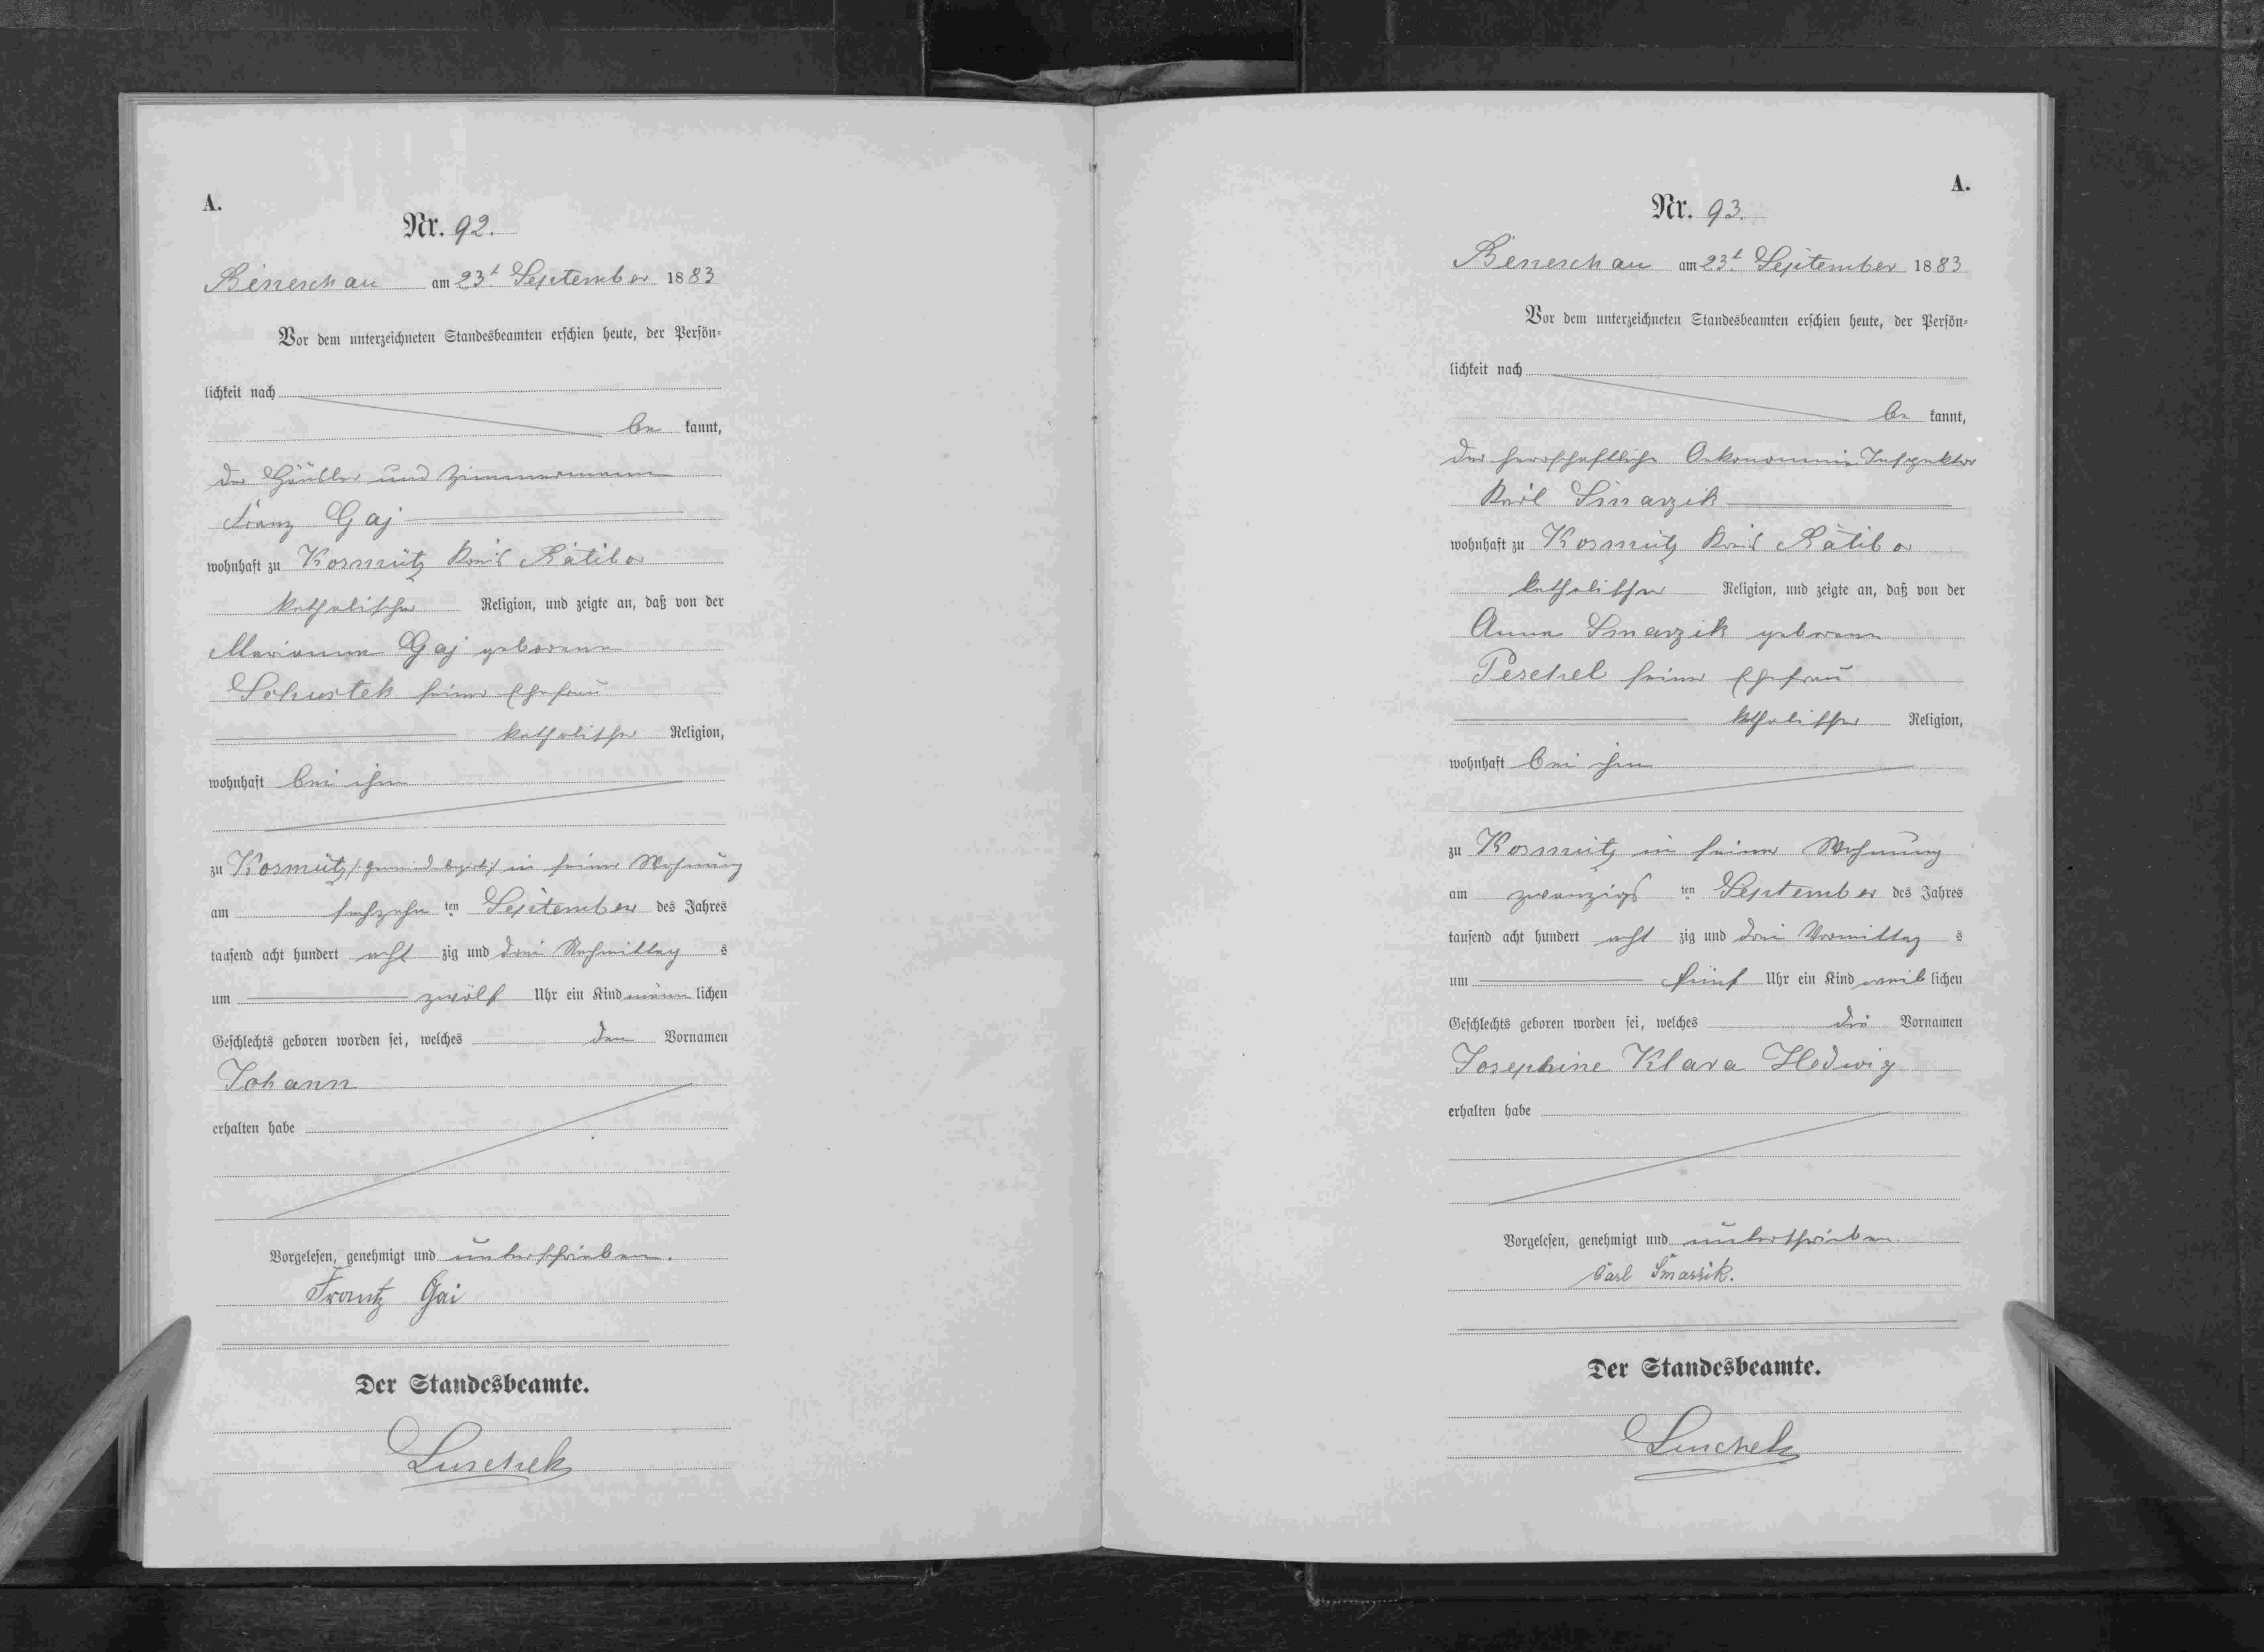 A.
Nr. 92.
Beneschau am 23t September 1883
Vor dem unterzeichneten Standesbeamten erschien heute, der Persön-
lichkeit nach
be kannt,
der Häusler und Zimmermann
Franz Gaj
wohnhaft zu Kosmütz Kreis Ratibor
katholischer Religion, und zeigte an, daß von der
Marianna Gaj geborene
Schustek seiner Ehefrau
katholischer Religion,
wohnhaft bei ihm
zu Kosmütz /: Gemeindebezirk :/ in seiner Wohnung
am sechzehn ten September des Jahres
tausend acht hundert acht zig und drei Nachmittag s
um zwölf Uhr ein Kind männ lichen
Geschlechts geboren worden sei, welches den Vornamen
Johann
erhalten habe
Vorgelesen, genehmigt und unterschrieben.
Frantz Gai
Der Standesbeamte.
Luschek
A.
Nr. 93.
Beneschau am 23t. September 1883
Vor dem unterzeichneten Standesbeamten erschien heute, der Persön-
lichkeit nach
be kannt,
der herrschaftliche Oekonomie Inspektor
Karl Smarzik
wohnhaft zu Kosmütz Kreis Ratibor
katholischer Religion, und zeigte an, daß von der
Anna Smarzik geborene
Peschel seiner Ehefrau
katholischer Religion,
wohnhaft bei ihm
zu Kosmütz in seiner Wohnung
am zwanzigs ten September des Jahres
tausend acht hundert acht zig und drei Vormittag s
um fünf Uhr ein Kind weib lichen
Geschlechts geboren worden sei, welches die Vornamen
Josephine Klara Hedwig
erhalten habe
Vorgelesen, genehmigt und unterschrieben
Carl Smarzik.
Der Standesbeamte.
Luschek